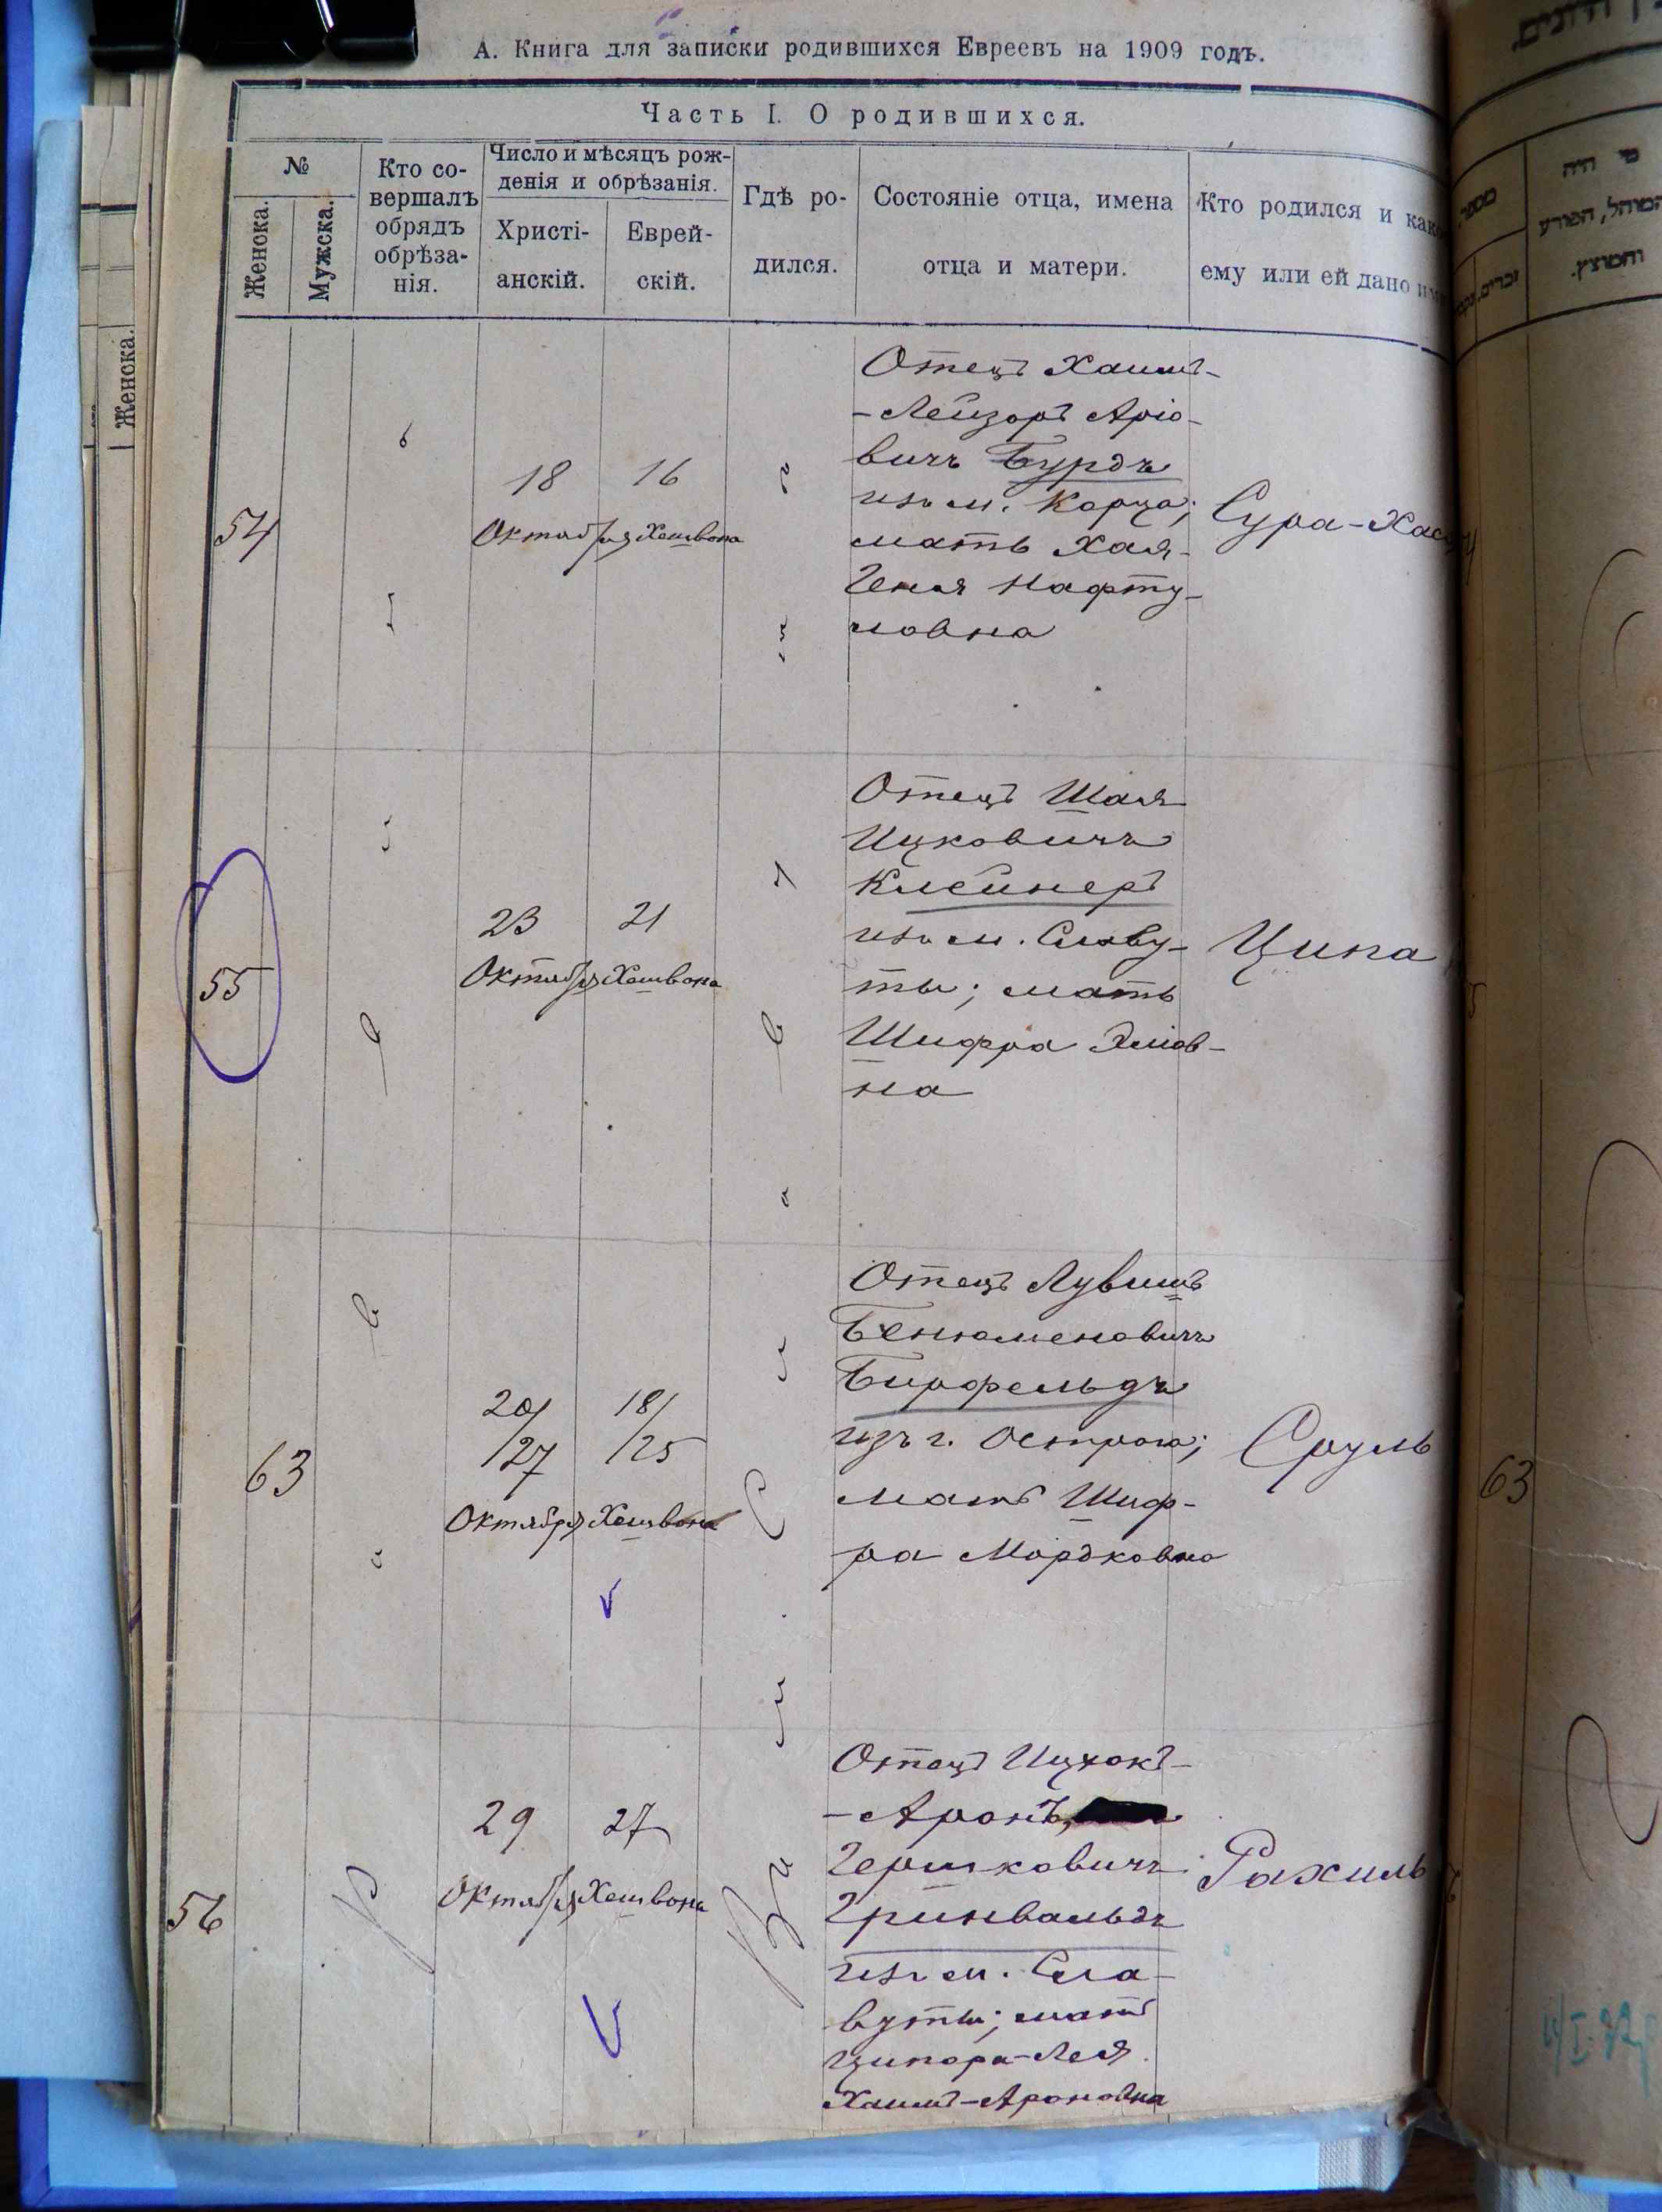 А. Книга для записки родившихся Евреевъ на 1909 годъ.
Часть I. О родившихся.
№
Женска.
Мужска.
Кто со-
вершалъ
обрядъ
обрѣза-
нія.
Число и мѣсяцъ рож-
денія и обрѣзанія.
Христі-
анскій.
Еврей-
скій.
Гдѣ ро-
дился.
Состояніе отца, имена
отца и матери.
Кто родился и како
ему или ей дано им
Женска.
54
18
Октября
16
Хешвона
Отецъ Хаимъ-
-Лейзоръ Аріо-
вичъ Бурдъ
изъ м. Корца;
мать Хая-
Геня Нафту-
ловна
Сура-Хас
55
23
Октября
21
Хешвона
Отецъ Шая
Ицковичъ
Клейнеръ
изъ м. Славу-
ты; мать
Шифра
на
Ципа
63
20/
/27
Октября
18/
/25
Хешвона
Отецъ Лувишъ
Бенюменовичъ
Бирфельдъ
изъ г. Острога;
мать Шиф-
ра Мордковна
Сруль
63
56
29
Октября
27
Хешвона
Отецъ Ицхокъ-
-Аронъ
Гершковичъ
Гринвальдъ
изъ м. Сла-
вуты; мать
Ципора-Лея
Хаимъ-Ароновна
Рахиль
מספר
זכרים.
מי היה
המוהל, הפורע
והמוצץ.